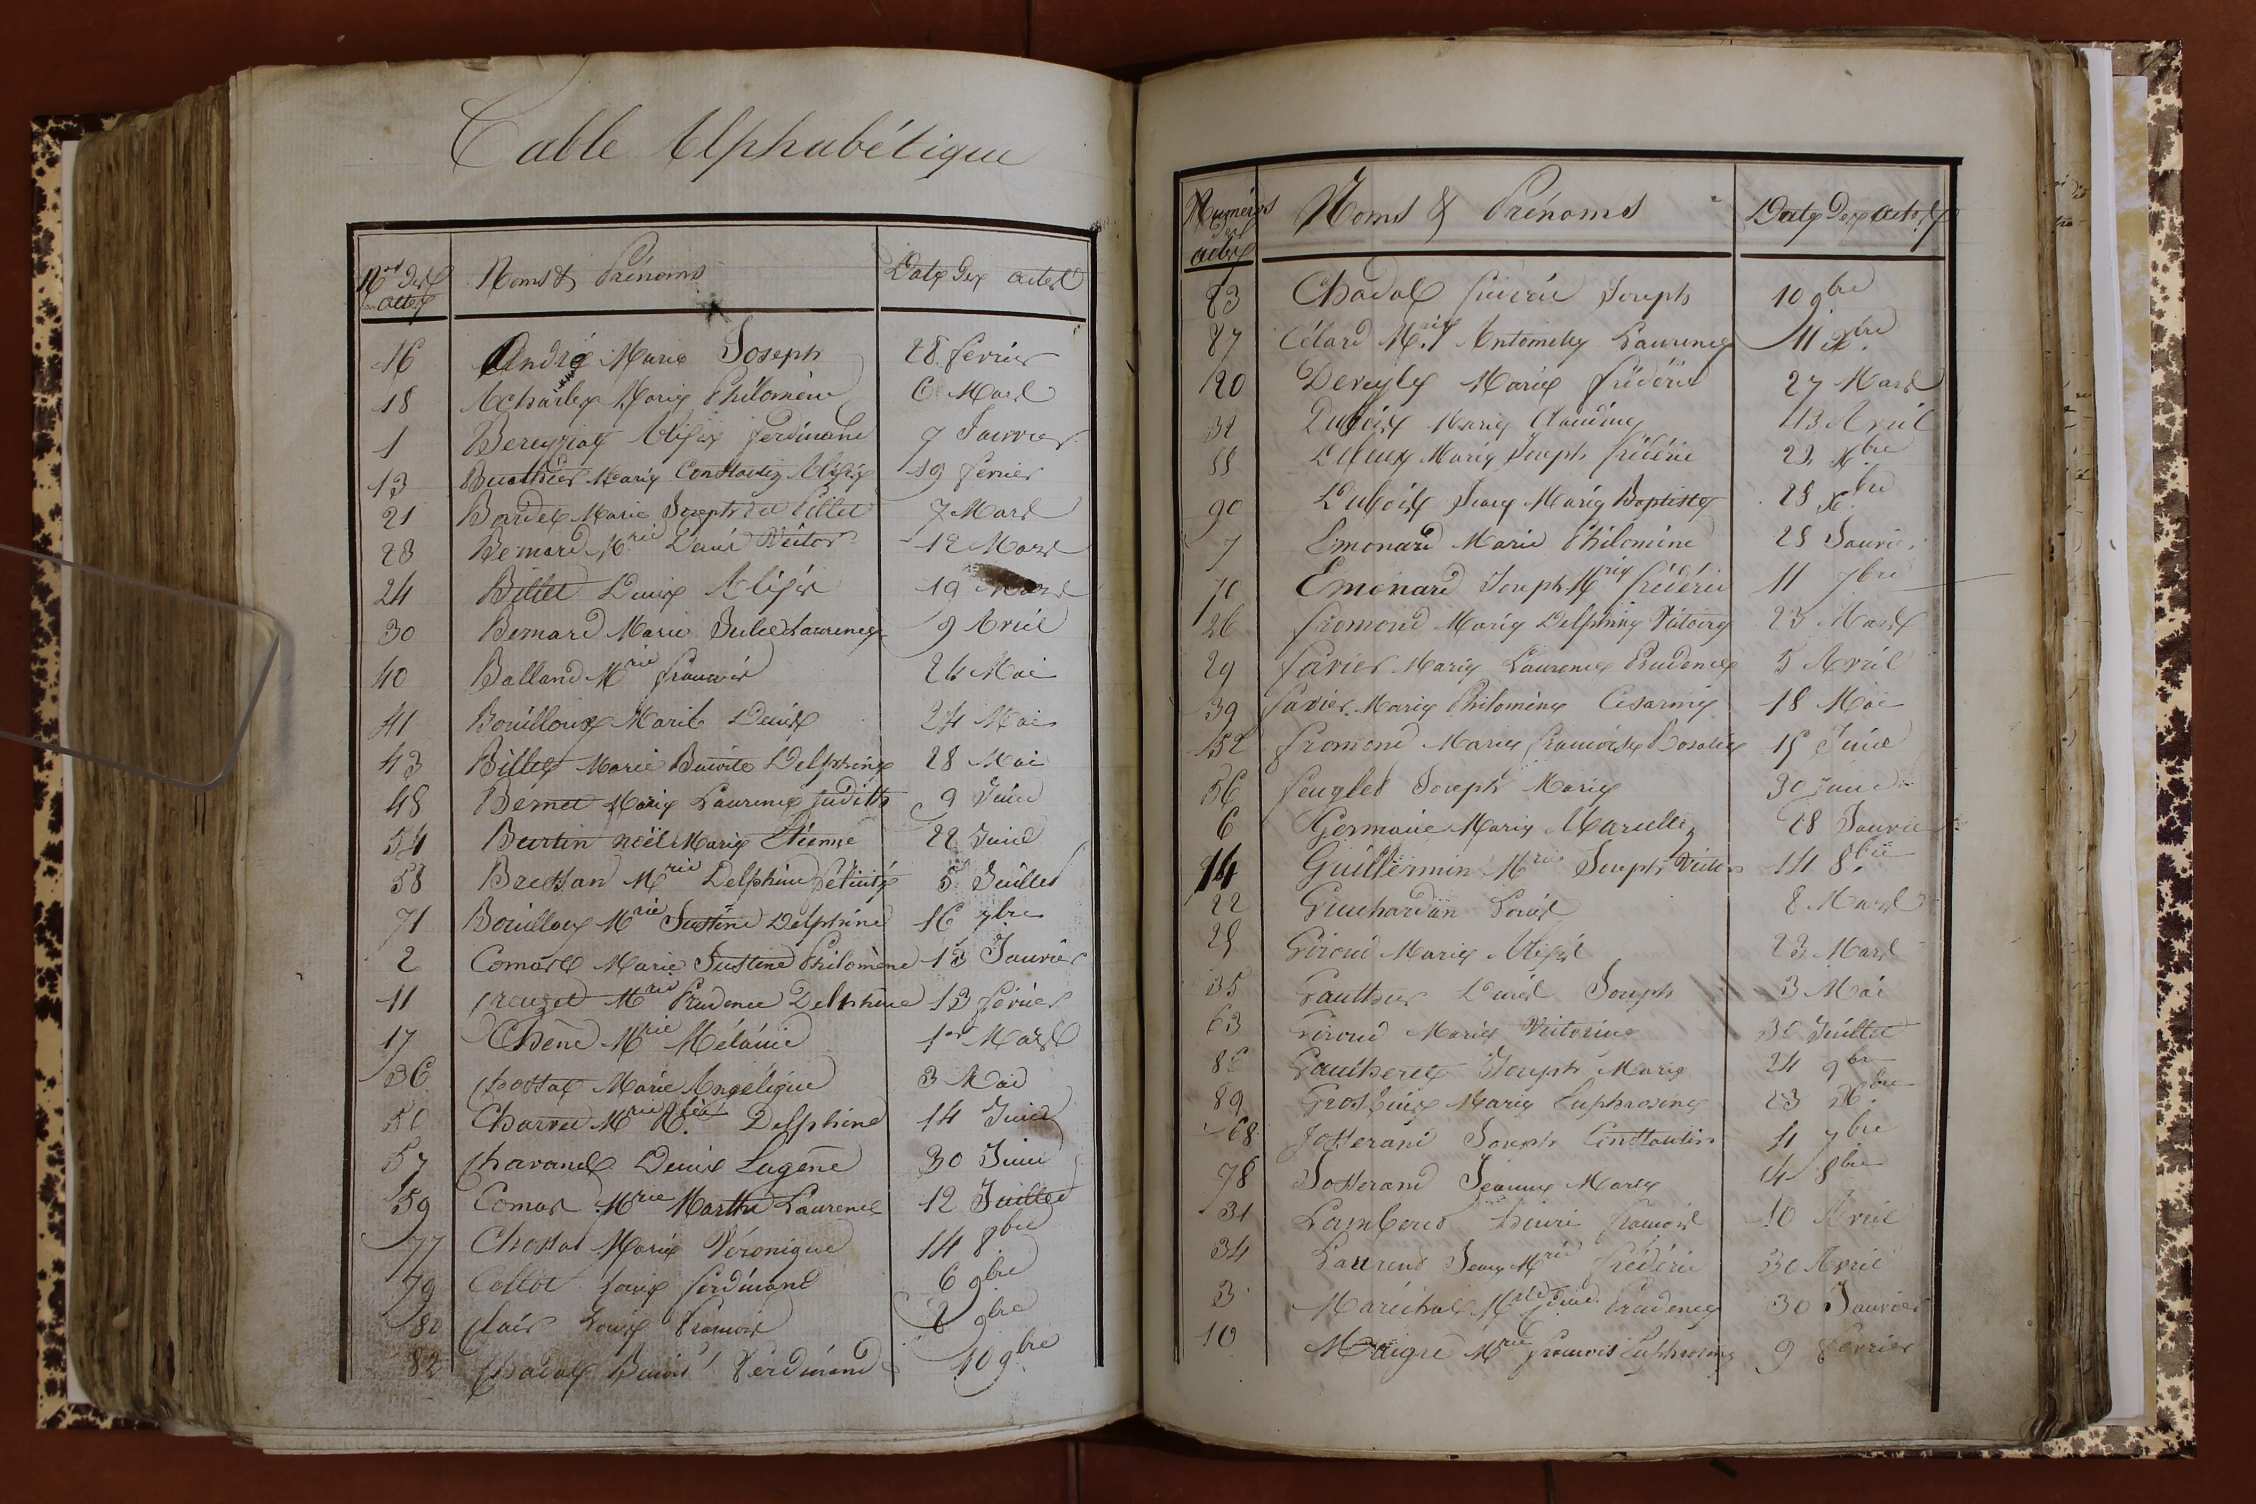 Table Alphabétique
Nos des actes Noms & Prénoms Date des actes
16 André Marie Joseph 28 février
18 Acharles Marie Philomène 6 Mars
1 Bereyziat Alexis ferdinand 7 Janvier
13 Berthier Marie Constantin Alexis 19 fevrier
21 Bordel Marie Joseph 7 Mars
28 Bernard Mrie Louis Victor 12 Mars
24 Billet Louis Alexis 19 Mars
30 Bernard Marie Julie Laurence 9 Avril
40 Balland Mrie francois 26 Mai
41 Bouilloux Marie Louis 24 Mai
43 Billet Marie Benoite Delphine 28 Mai
48 Bernet Marie Laurence Judith 9 Juin
54 Burtin noël Marie Etienne 22 Juin
58 Bressan Mrie Delphine Félicité 5 Juillet
71 Bouilloux Mrie Justine Delphine 16 7bre
2 Comas Marie Justine Philomène 13 Janvier
11 Creuzet Mrie Prudence Delphine 13 février
17 Chêne Mrie Mélanie 1er Mars
36 Chossat Marie Angélique 3 Mai
50 Charvet Mrie Delphine 14 Juin
57 Chavanel Denis Eugène 30 Juin
59 Comas Mrie Marthe Laurence 12 Juillet
77 Chossat Marie Véronique 14 8bre
79 Collet Louis ferdinand 6 9bre
80 Clair Louis François 8 9bre
82 Chadal Benoit Ferdinand 10 9bre
Numéros des actes Noms & Prénoms Date des actes
83 Chadal frédéric Joseph 10 9bre
87 Célard Mrie Antoinette Laurence 11 Xbre
20 Deveyle Marie frédéric 27 Mars
32 Dubois Marie Claudine 13 Avril
88 Marie Joseph frédéric 23 Xbre
90 Dubois Jean Marie Baptiste 28 Xbre
7 Emonard Marie Philomène 28 Janvier
70 Emonard Joseph Mrie frédéric 11 7bre
26 fromond Marie Delphine Victoire 23 Mars
29 favier Marie Laurence Prudence 5 Avril
39 favier Marie Philomène Césarine 18 Mai
52 fromond Marie francoise Rosalie 15 Juin
56 feuglet Joseph Marie 30 Juin
6 Germain Marie Marcellin 28 Janvier
14 Guillermin Mrie Joseph Victor 14 8bre
22 Guichardan Louis 8 Mars
25 Giroud Marie Alexis 23 Mars
35 Gauthier Louis Joseph 3 Mai
63 Giroud Marie Victorine 30 Juillet
86 Gautheret Joseph Marie 24 9bre
89 Gros Marie Euphrosine 23 Xbre
68 Josserand Joseph Constantin 4 7bre
78 Josserand Jeanne Marie 14 8bre
31 Lambert henri francois 10 Avril
34 Laurent Jean Mrie frédéric 30 Avril
3 Maréchal Mrie Prudence 30 Janvier
10 Maigre Mrie francois Euphrosine 9 Février